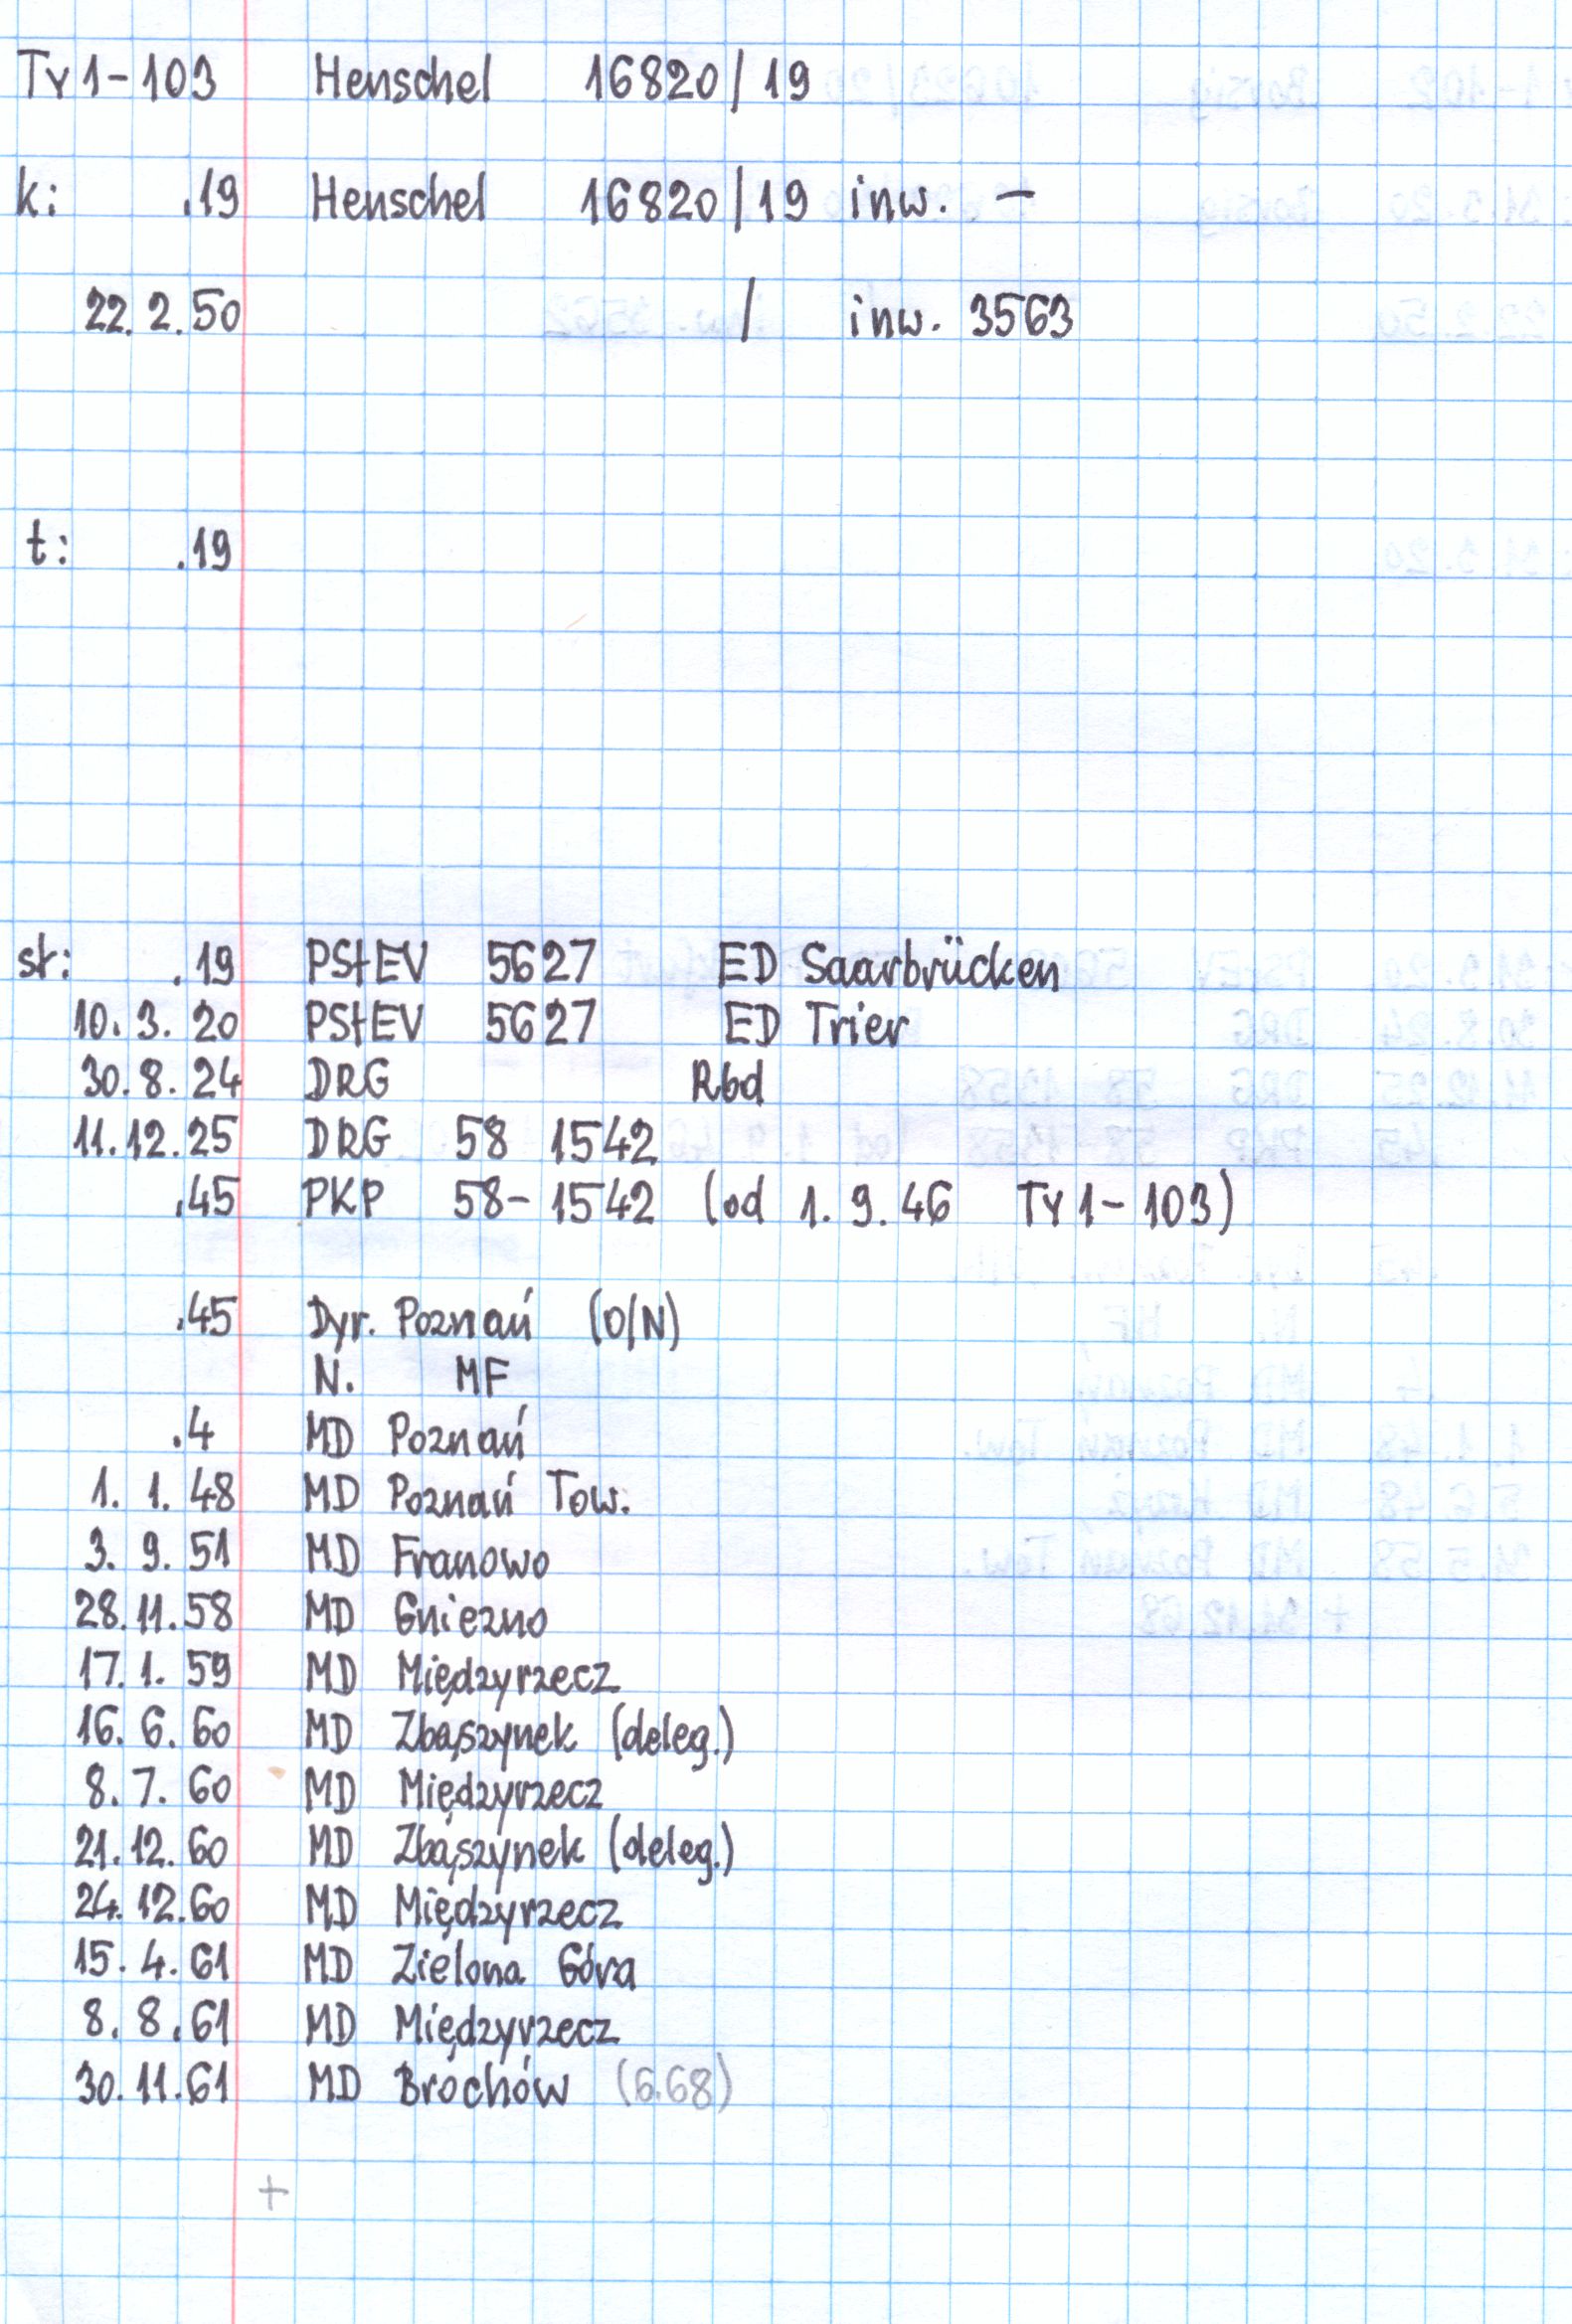 Ty1-103 Henschel 16820/19
k: .19 Henschel 16820/19 inw. -
22.2.50 / inw. 3563
t: .19
st: .19 PStEV 5627 ED Saarbrücken
10.3.20 PStEV 5627 ED Trier
30.8.24 DRG Rbd
11.12.25 DRG 58 1542
.45 PKP 58-1542 (od 1.9.46 Ty1-103)
.45 Dyr. Poznań (O/N)
N. MF
.4 MD Poznań
1.1.48 MD Poznań Tow.
3.9.51 MD Franowo
28.11.58 MD Gniezno
17.1.59 MD Międzyrzecz
16.6.60 MD Zbąszynek (deleg.)
8.7.60 MD Międzyrzecz
21.12.60 MD Zbąszynek (deleg.)
24.12.60 MD Międzyrzecz
15.4.61 MD Zielona Góra
8.8.61 MD Międzyrzecz
30.11.61 MD Brochów (6.68)
+